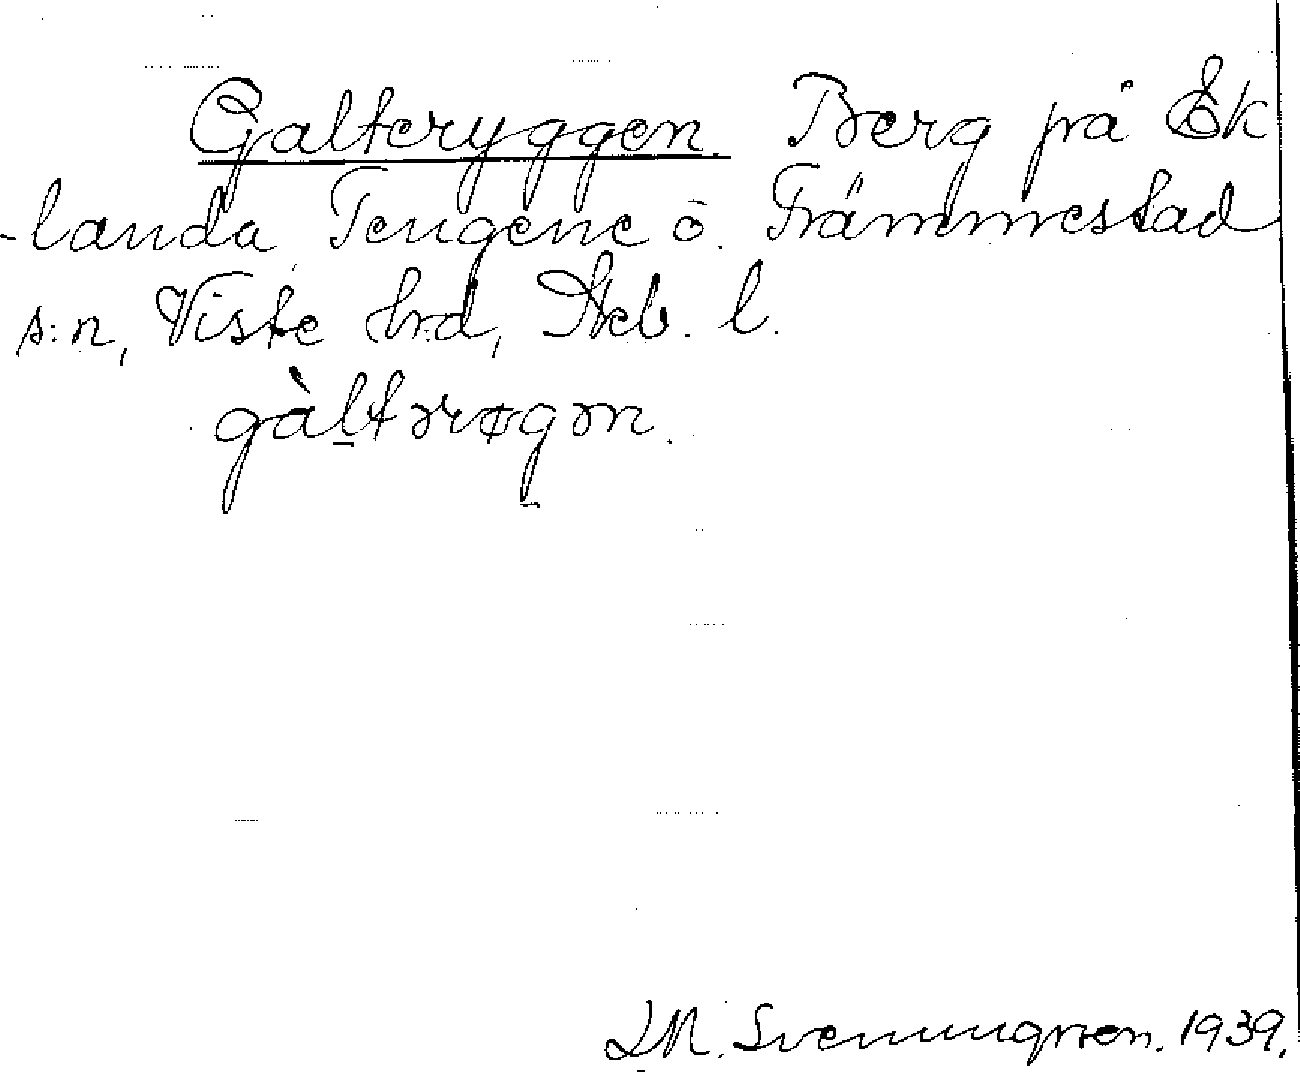 Galteryggen. Berg på Ek
-landa Tengene o. Främmestad
s:n, Viste hrd, Skb. l.
gàltərøgən.
L M. Svenungsson. 1939.